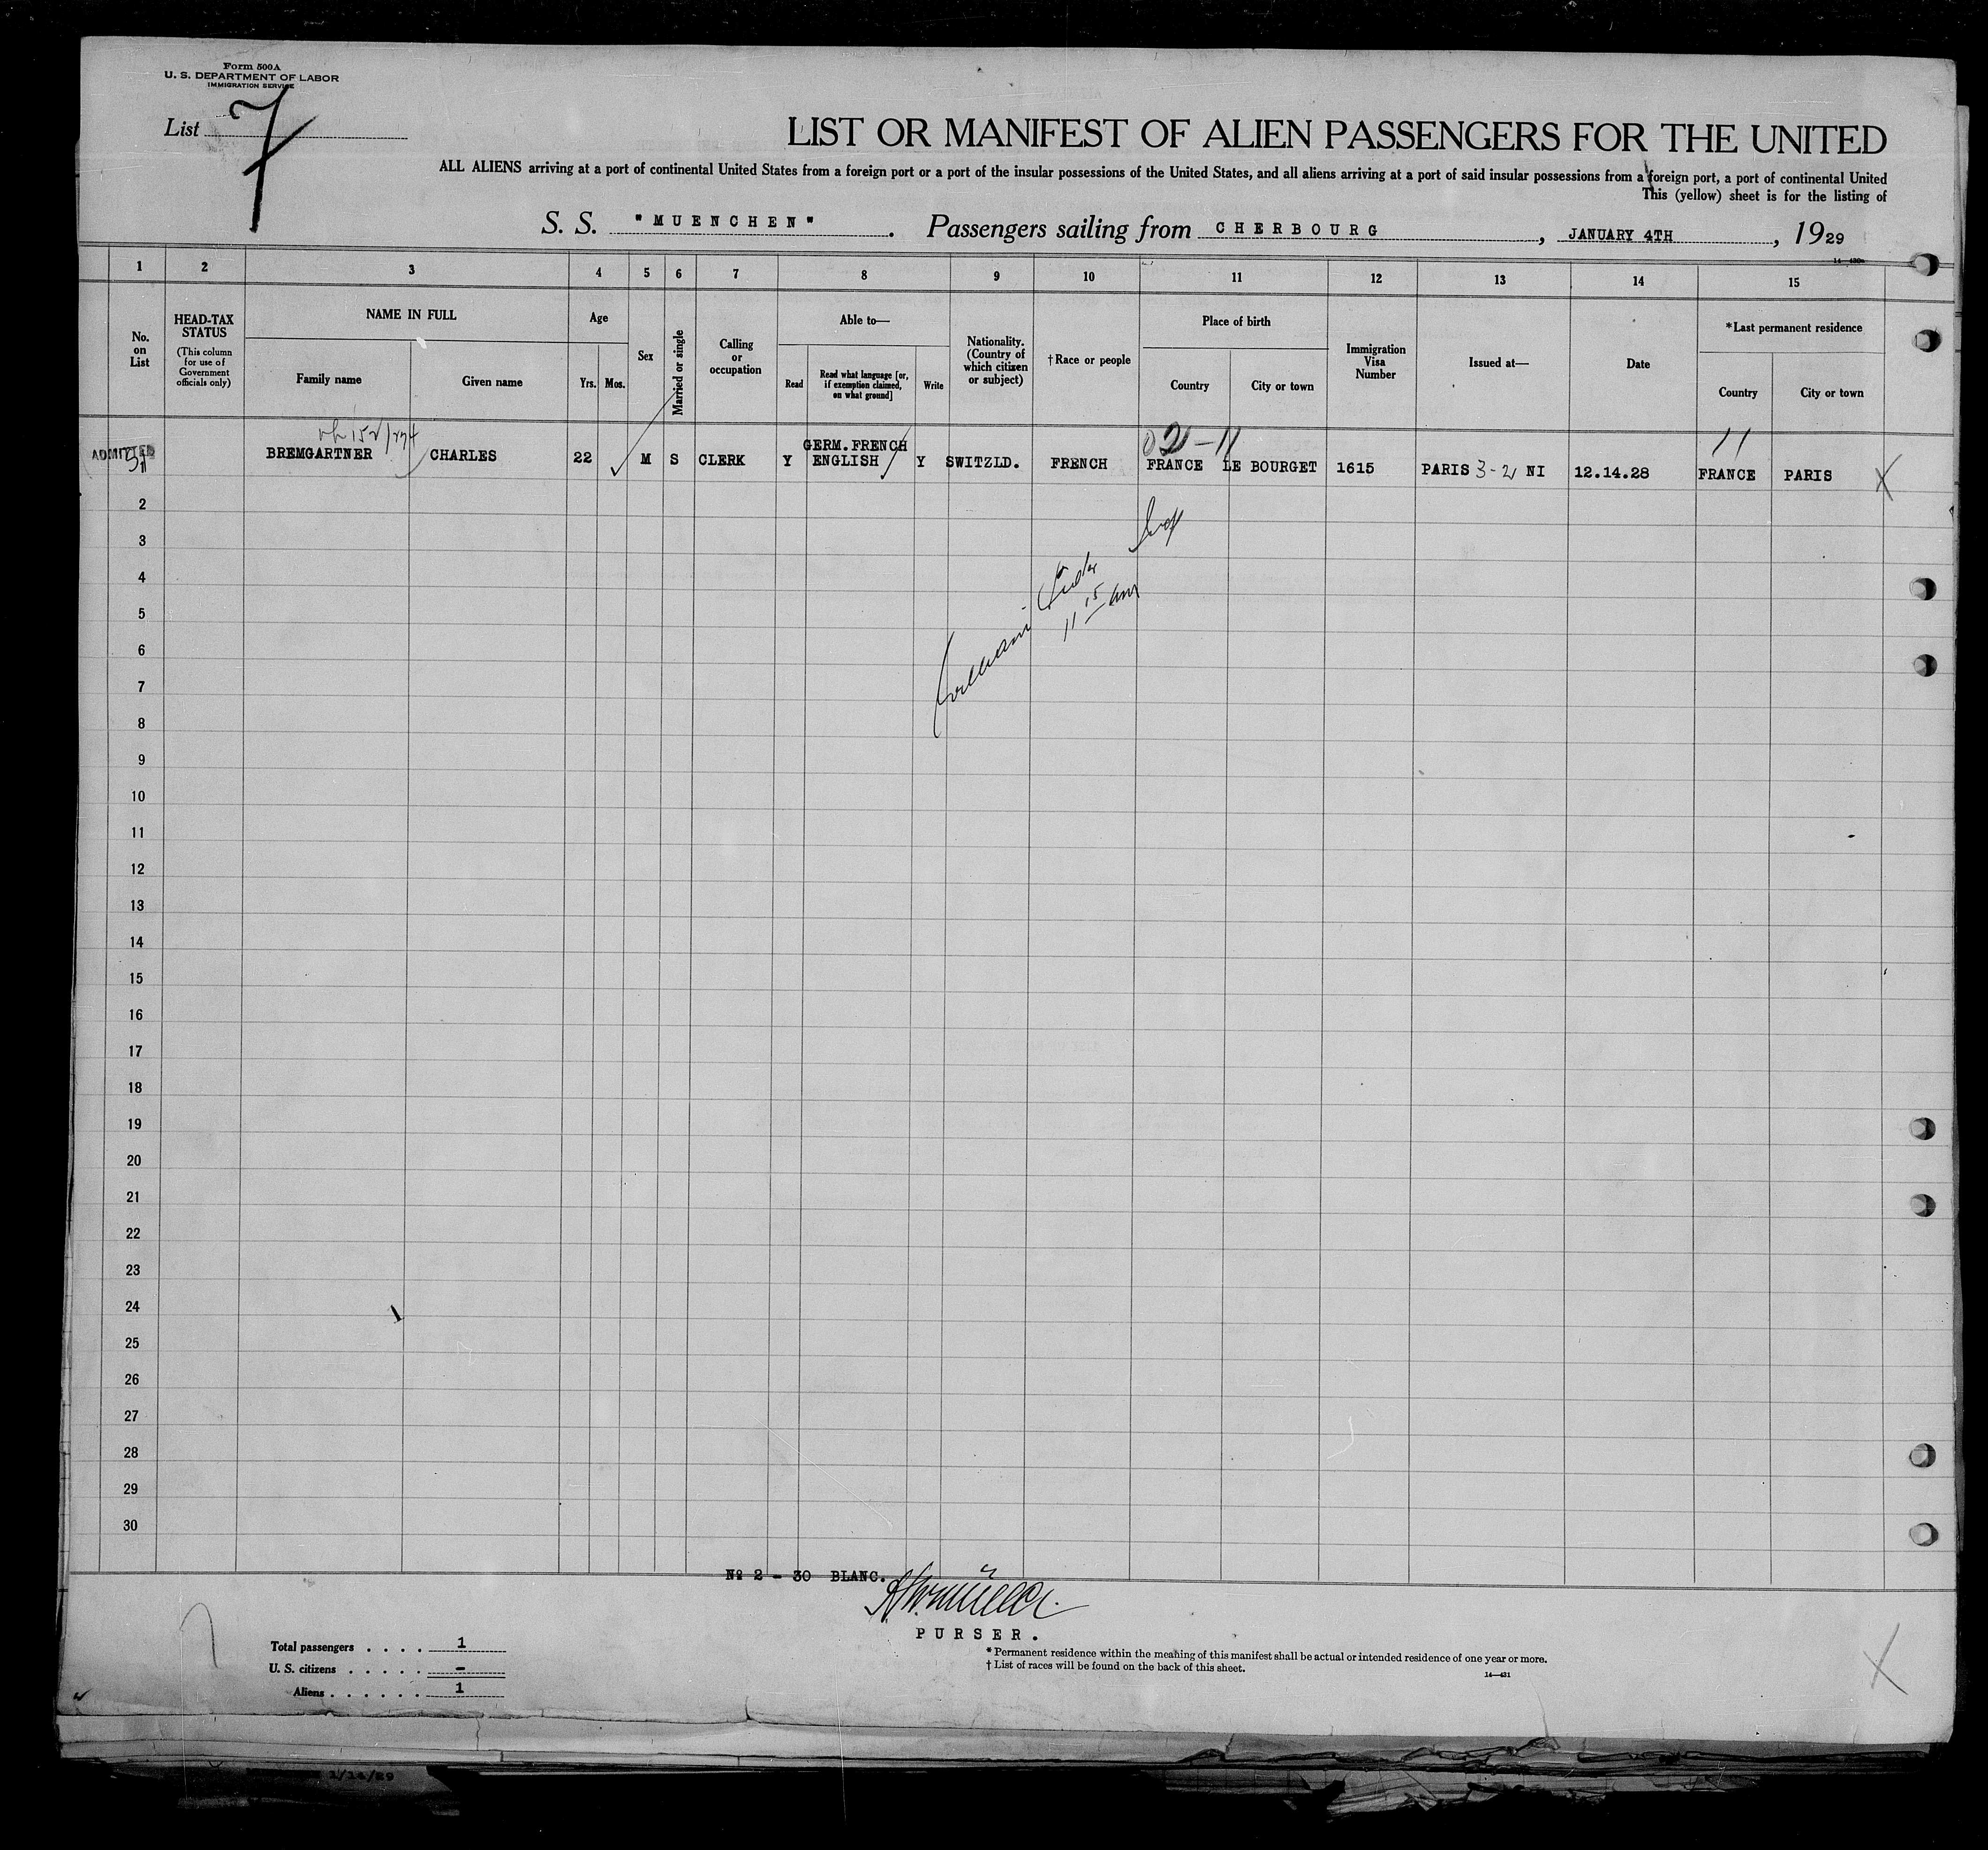 Form 500A
U. S. DEPARTMENT OF LABOR
IMMIGRATION SERVICE
List 7
LIST OR MANIFEST OF ALIEN PASSENGERS FOR THE UNITED
ALL ALIENS arriving at a port of continental United States from a foreign port or a port of the insular possessions of the United States, and all aliens arriving at a port of said insular possessions from a foreign port, a port of continental United
This (yellow) sheet is for the listing of
S. S. "MUENCHEN". Passengers sailing from CHERBOURG, JANUARY 4TH, 1929
1 2 3 4 5 6 7 8 9 10 11 12 13 14 15
No. on List
HEAD-TAX STATUS
(This column for use of Government officials only)
NAME IN FULL
Family name
Given name
Age
Yrs. Mos.
Sex
Married or single
Calling or occupation
Able to—
Read
Read what language [or, if exemption claimed, on what ground]
Write
Nationality. (Country of which citizen or subject)
† Race or people
Place of birth
Country
City or town
Immigration Visa Number
Issued at—
Date
*Last permanent residence
Country
City or town
ADMITTED
BREMGARTNER CHARLES 22 M S CLERK Y GERM. FRENCH ENGLISH Y SWITZLD. FRENCH FRANCE LE BOURGET 1615 PARIS 3-2 NI 12.14.28 FRANCE PARIS
11
2
3
4
5
6
7
8
9
10
11
12
13
14
15
16
17
18
19
20
21
22
23
24
25
26
27
28
29
30
11 15 am
№ 2 - 30 BLANC.
PURSER.
Total passengers . . . . 1
U. S. citizens . . . . . -
Aliens . . . . . . 1
* Permanent residence within the meaning of this manifest shall be actual or intended residence of one year or more.
† List of races will be found on the back of this sheet.
14—431